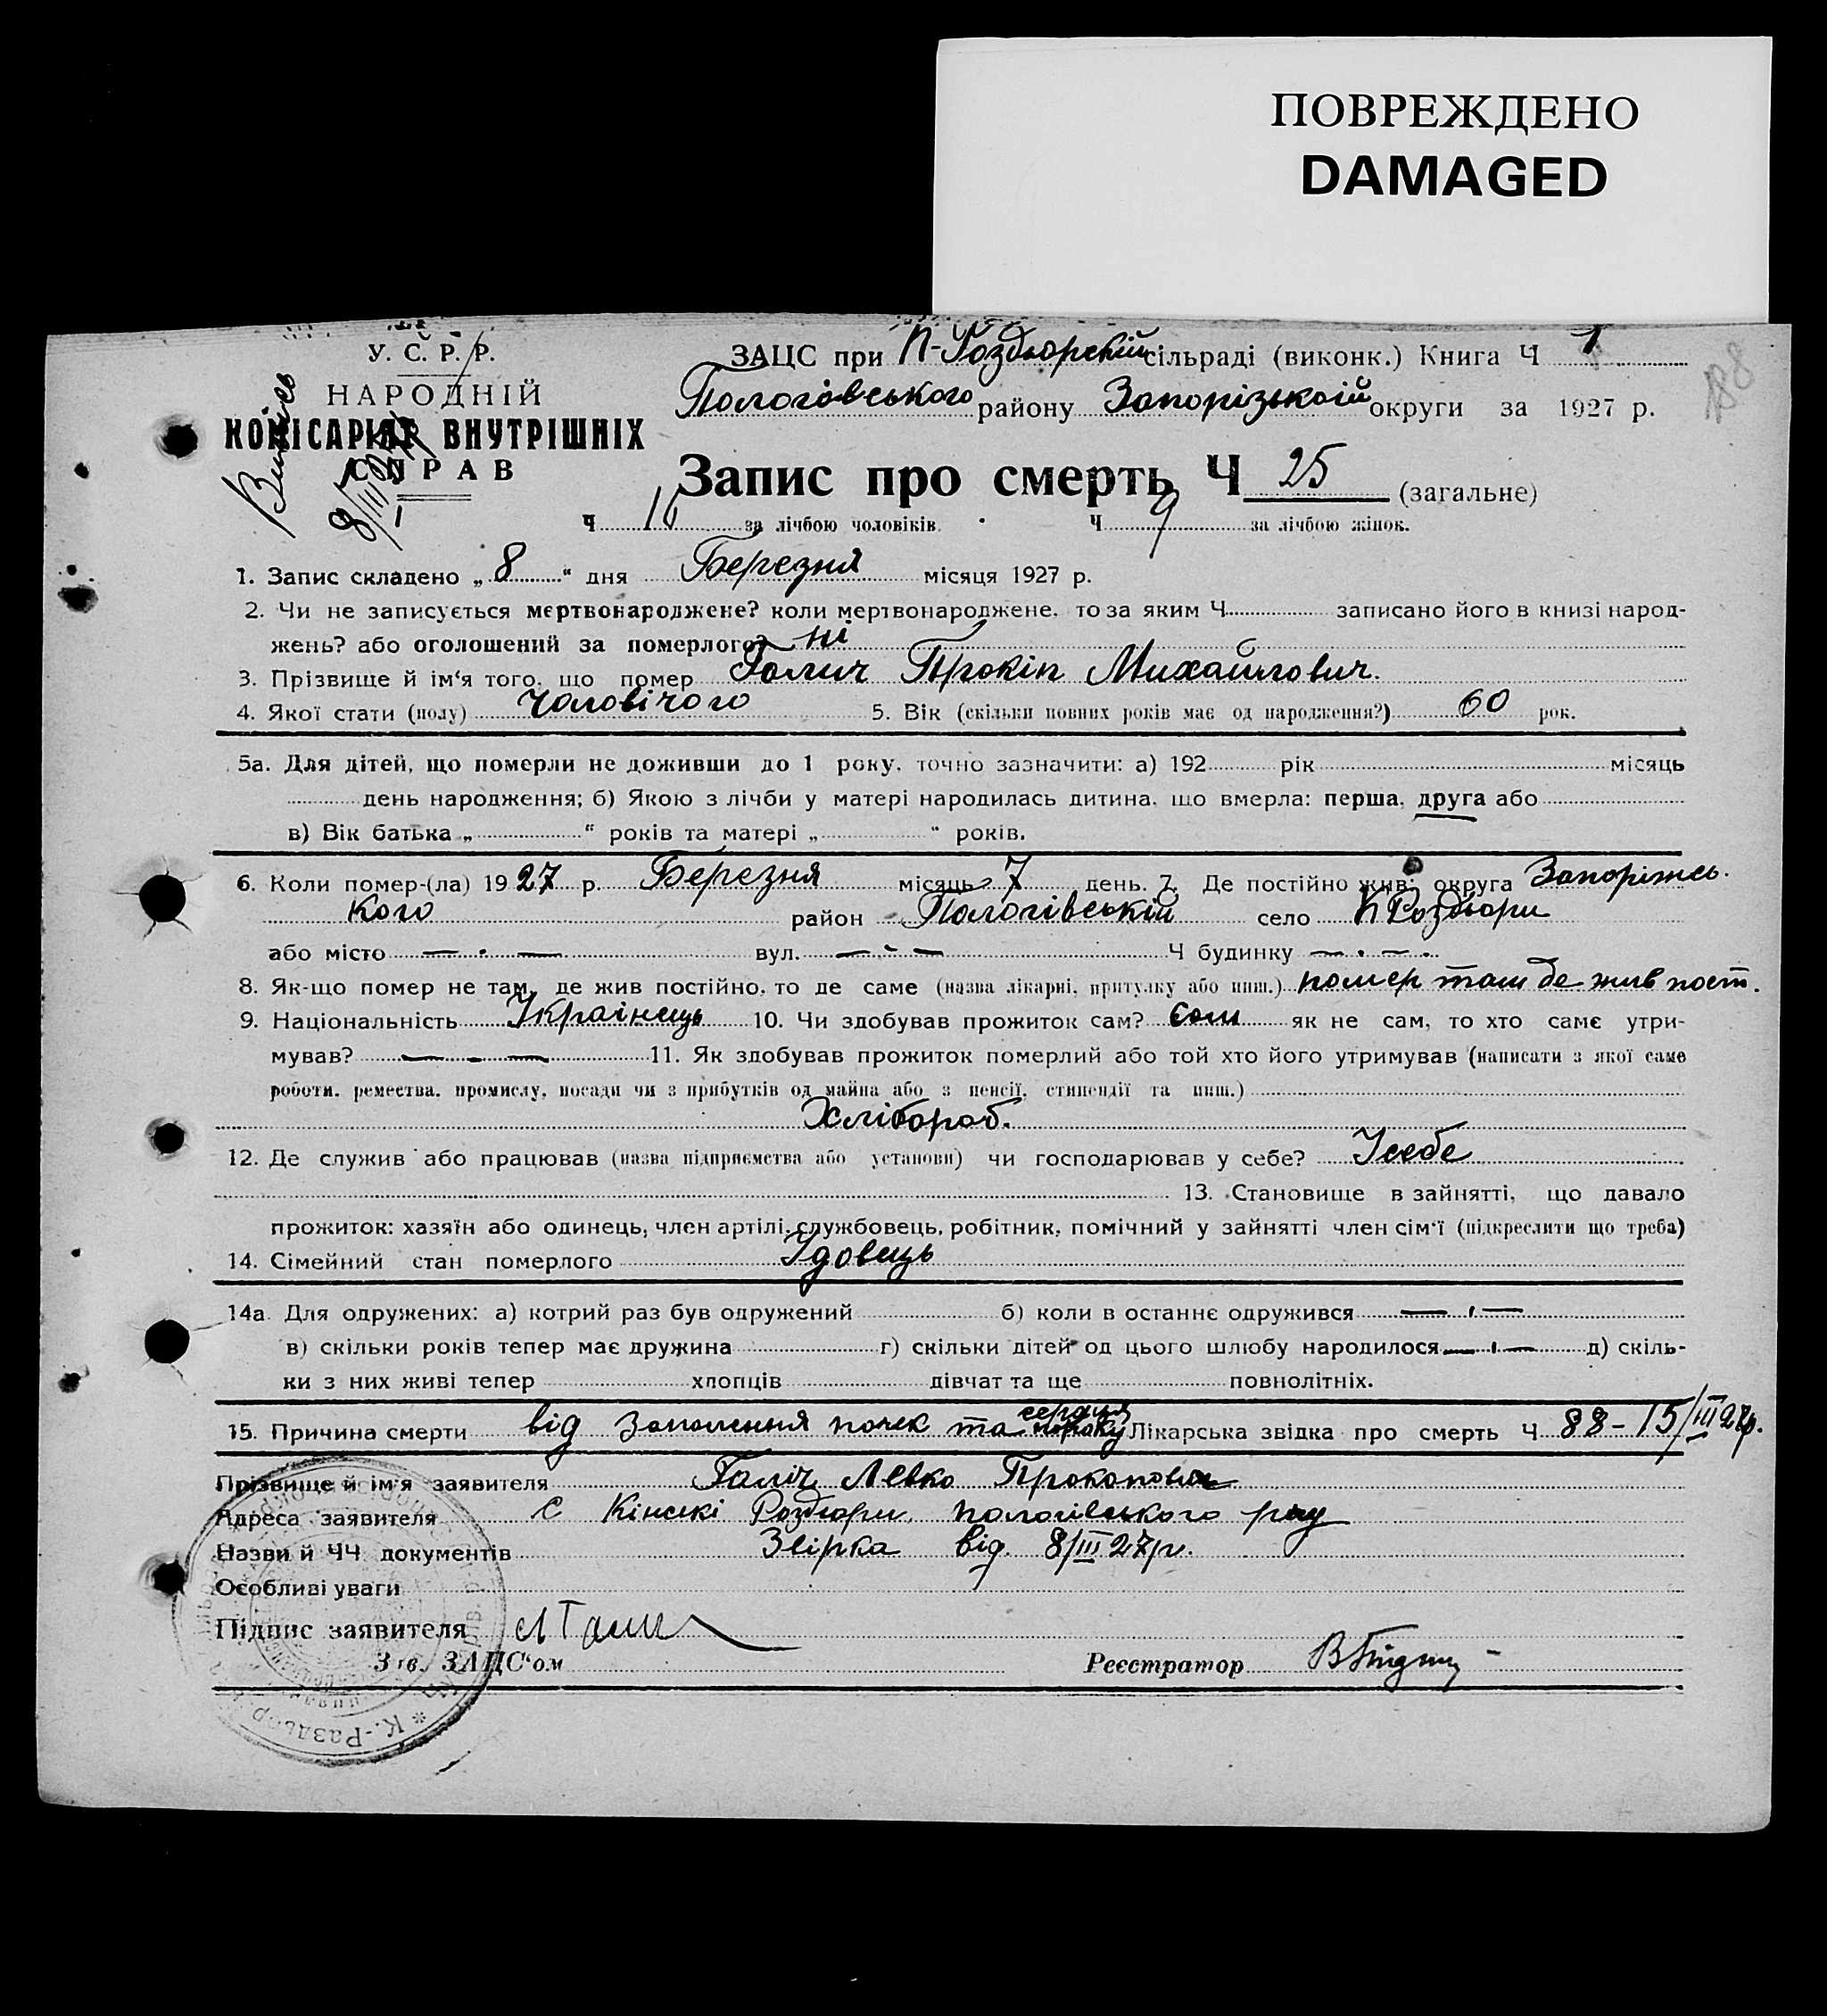 ПОВРЕЖДЕНО
DAMAGED
У. С. Р. Р.
НАРОДНІЙ
КОМІСАРІЯТ ВНУТРІШНІХ
СПРАВ
Випісь
ЗАЦС при К-Роздьорській сільраді (виконк.) Книга Ч 1
188
Пологівського району Запорізькоій округи за 1927 р.
Запис про смерть Ч 25 (загальне)
Ч 16 за лічбою чоловіків. Ч 9 за лічбою жінок.
1. Запис складено „ 8 “ дня Березня місяця 1927 р.
2. Чи не записується мертвонароджене? коли мертвонароджене, то за яким Ч записано його в книзі народ-
жень? або оголошений за померлого? ні
3. Прізвище й ім‘я того, що помер Галич Прокіп Михайлович.
4. Якої стати (полу) чоловічого 5. Вік (скільки повних років має од народження?) 60 рок.
5а. Для дітей, що померли не доживши до 1 року, точно зазначити: а) 192 рік місяць
день народження; б) Якою з лічби у матері народилась дитина, що вмерла: перша, друга або
в) Вік батька „ “ років та матері „ “ років.
6. Коли помер-(ла) 1927 р. Березня місяць 7 день. 7. Де постійно жив: округа Запоріжсь-
кого район Пологівській село К Роздьори
або місто — · — вул. — · — Ч будинку — · — ·
8. Як-що помер не там, де жив постійно, то де саме (назва лікарні, притулку або инш.) помер там де жив пост.
9. Національність Українець 10. Чи здобував прожиток сам? Сам як не сам, то хто саме утри-
мував? — · — 11. Як здобував прожиток померлий або той хто його утримував (написати з якої саме
роботи, ремества, промислу, посади чи з прибутків од майна або з пенсії, стипендії та инш.)
Хлібороб.
12. Де служив або працював (назва підприємства або установи) чи господарював у себе? Усебе
13. Становище в зайнятті, що давало
прожиток: хазяїн або одинець, член артілі, службовець, робітник, помічний у зайнятті член сім‘ї (підкреслити що треба)
14. Сімейний стан померлого Удовець
14а. Для одружених: а) котрий раз був одружений б) коли в останнє одружився — · —
в) скільки років тепер має дружина г) скільки дітей од цього шлюбу народилося — · — д) скіль-
ки з них живі тепер хлопців дівчат та ще повнолітніх.
15. Причина смерти від Заполення почек та пороку серация Лікарська звідка про смерть Ч 88 - 15/III 27р.
Прізвище й ім‘я заявителя Галіч Левко Прокопович
Адреса заявителя с Кінські Роздори Пологівського р-ну
Назви й ЧЧ документів Звірка від 8/III 27р.
Особливі уваги
Підпис заявителя Л Галич
Зав. ЗАЦС‘ом Реєстратор
* К.-Раздор